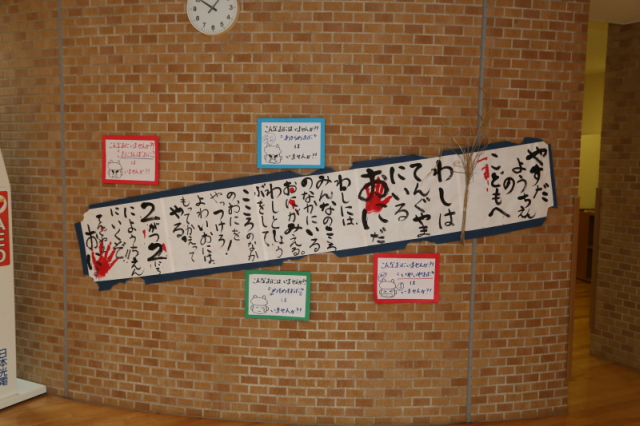 やすだ
ようちえん
の
こどもへ
わしは
てんぐやま
にいる
おにだ
わしには、
みんなのこころ
のなかにいる
おにがみえる。
わしとしょう
ぶをして、
こころのなか
のおにを
やっつけろ!
よわいおには、
もってかえって
やる。
2がつ2にち
にようちえん
にいくぞ
おに
こんなおにはいませんか??
は
いませんか??
こんなおにはいませんか??
は
いませんか??
こんなおにはいませんか??
は
いませんか??
こんなおにはいませんか??
は
いませんか??
AED
日本光電